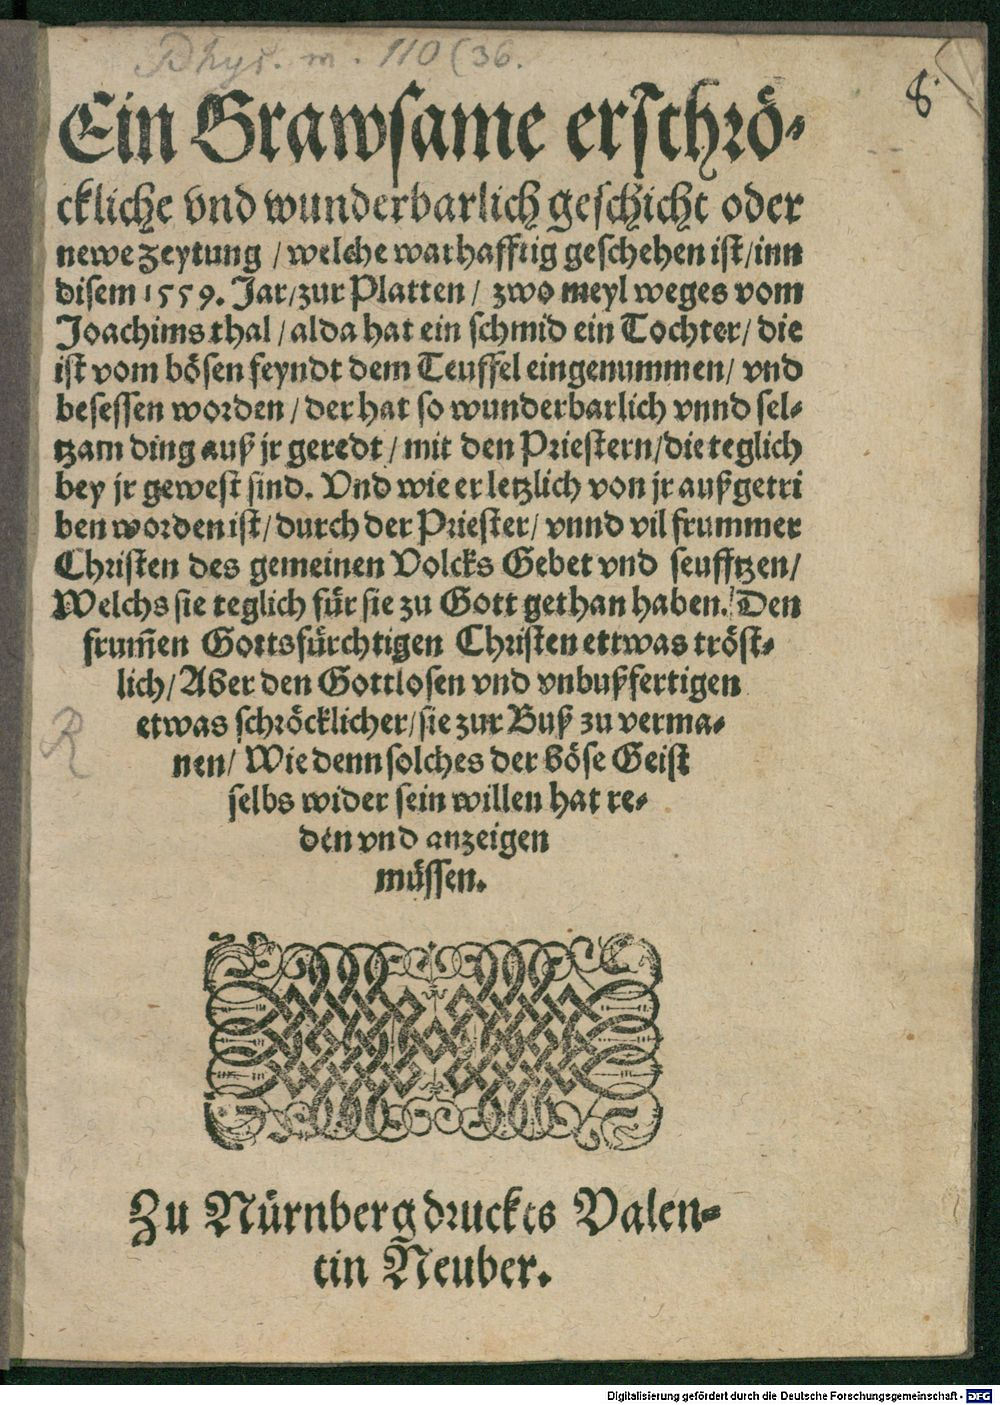 Phys. m. 110 (36.
8.
Ein Grawsame erschrö-
ckliche vnd wunderbarlich geschicht oder
newe zeytung / welche warhafftig geschehen ist / inn
disem 1559. Jar / zur Platten / zwo meyl weges vom
Joachimsthal / alda hat ein schmid ein Tochter / die
ist vom bösen feyndt dem Teuffel eingenummen / vnd
besessen worden / der hat so wunderbarlich vnnd sel-
tzam ding auß jr geredt / mit den Priestern / die teglich
bey jr gewest sind. Vnd wie er letzlich von jr außgetri
ben worden ist / durch der Priester / vnnd vil frummer
Christen des gemeinen Volcks Gebet vnd seufftzen /
Welchs sie teglich für sie zu Gott gethan haben. Den
frum̄en Gottsfürchtigen Christen ettwas tröst-
lich / Aber den Gottlosen vnd vnbußfertigen
etwas schröcklicher / sie zur Buß zu verma-
nen / Wie denn solches der böse Geist
selbs wider sein willen hat re-
den vnd anzeigen
müssen.
R
Zu Nürnberg druckts Valen-
tin Neuber.
Digitalisierung gefördert durch die Deutsche Forschungsgemeinschaft - DFG